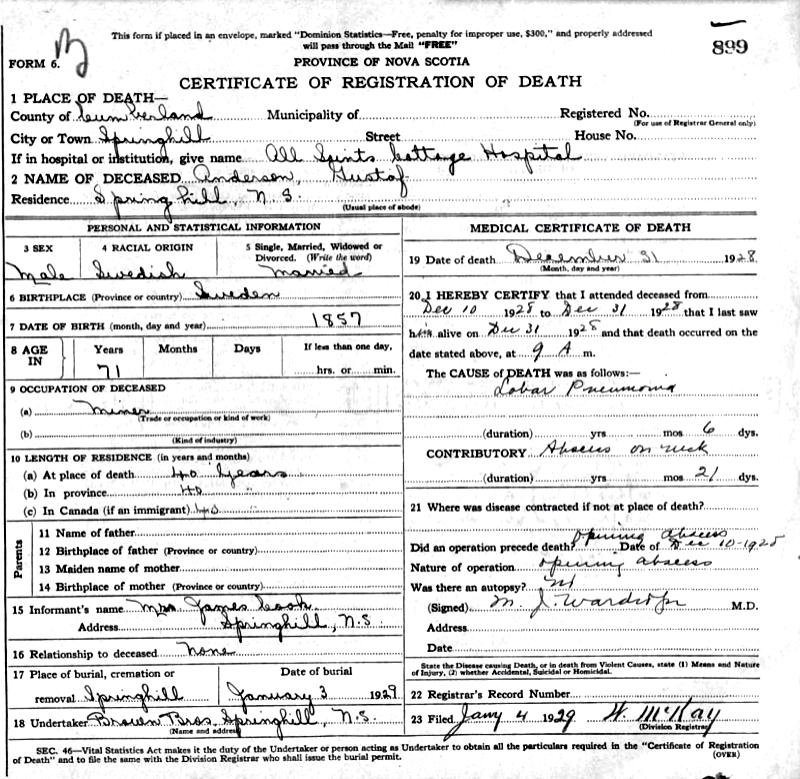 This form if placed in an envelope, marked "Dominion Statistics—Free, penalty for improper use, $300," and properly addressed
will pass through the Mail "FREE"
899
FORM 6.
PROVINCE OF NOVA SCOTIA
CERTIFICATE OF REGISTRATION OF DEATH
1 PLACE OF DEATH—
County of Cumberland Municipality of Registered No.
(For use of Registrar General only)
City or Town Springhill Street House No.
If in hospital or institution, give name All Saints Cottage Hospital
2 NAME OF DECEASED Anderson, Gustaf
Residence Springhill, N.S.
(Usual place of abode)
PERSONAL AND STATISTICAL INFORMATION
3 SEX 4 RACIAL ORIGIN 5 Single, Married, Widowed or
Divorced. (Write the word)
Male Swedish Married
6 BIRTHPLACE (Province or country) Sweden
7 DATE OF BIRTH (month, day and year) 1857
8 AGE IN Years Months Days If less than one day,
71 hrs. or min.
9 OCCUPATION OF DECEASED
(a) Miner
(Trade or occupation or kind of work)
(b)
(Kind of industry)
10 LENGTH OF RESIDENCE (in years and months)
(a) At place of death 40 Years
(b) In province 40 "
(c) In Canada (if an immigrant) 40 "
Parents
11 Name of father
12 Birthplace of father (Province or country)
13 Maiden name of mother
14 Birthplace of mother (Province or country)
15 Informant's name Mrs James Cook
Address Springhill, N.S.
16 Relationship to deceased None
17 Place of burial, cremation or Date of burial
removal Springhill January 3 1929
18 Undertaker Brown Bros. Springhill, N.S.
(Name and address)
MEDICAL CERTIFICATE OF DEATH
19 Date of death December 31 1928
(Month, day and year)
20 I HEREBY CERTIFY that I attended deceased from
Dec 10 1928 to Dec 31 1928 that I last saw
him alive on Dec 31 1928 and that death occurred on
date stated above, at 9 A m.
The CAUSE of DEATH was as follows:—
Lobar Pneumonia
(duration) yrs mos 6 dys.
CONTRIBUTORY Abscess on neck
(duration) yrs mos 21 dys.
21 Where was disease contracted if not at place of death?
opening abscess
Did an operation precede death? Date of Dec 10-1928
Nature of operation opening abscess
Was there an autopsy?
(Signed) M. J. Wardrope M.D.
Address
Date
State the Disease causing Death, or in death from Violent Causes, state (1) Means and Nature
of Injury, (2) whether Accidental, Suicidal or Homicidal.
22 Registrar's Record Number
23 Filed Jany 4 1929 H. McKay
(Division Registrar)
SEC. 46—Vital Statistics Act makes it the duty of the Undertaker or person acting as Undertaker to obtain all the particulars required in the "Certificate of Registration
of Death" and to file the same with the Division Registrar who shall issue the burial permit.
(OVER)